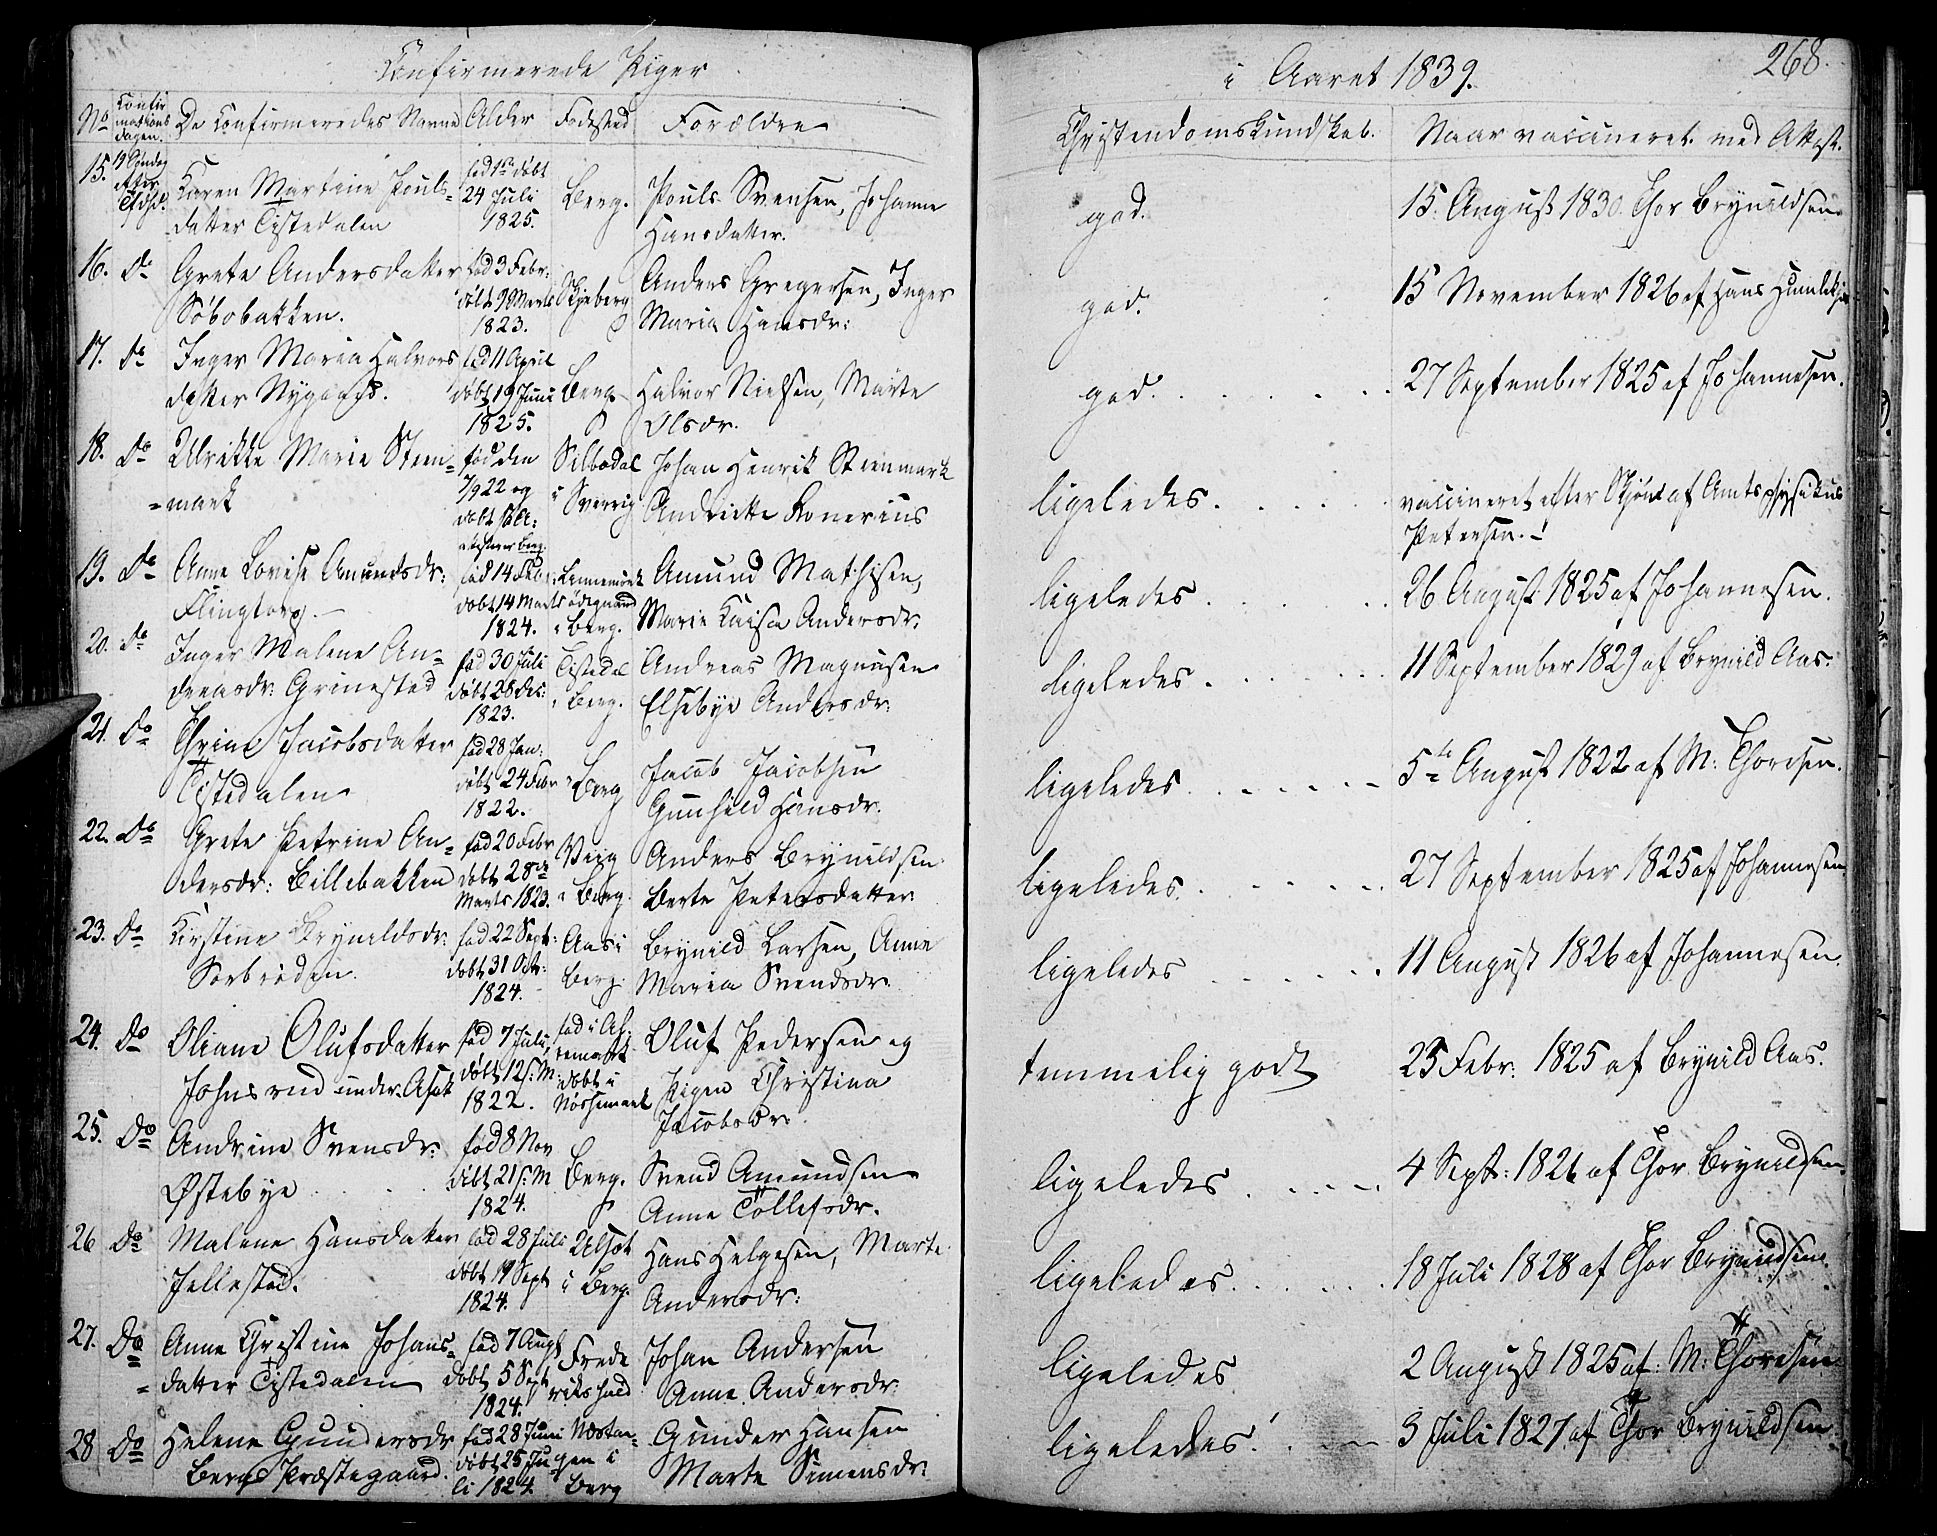 Confirmerede Piger
i Aaret 1839.
268.
No Confirmations dagen. De Confirmeredes Navne Alder Fødested Forældre Christendomskundskab. Naar vaccineret med Attest.
15. 19 Søndag efter
Karen Martine Pouls=
datter Tistedalen
fød 1ste døbt
24 Juli
1825.
Berg.
Pouls Svensen, Johanne
Hansdatter.
god.
15. August 1830. Thor Brynildsen
16. Do
Grete Andersdatter
Søbobakken.
fød 3 Febr:
døbt 9 Marts
1823.
Skjeberg
Anders Gregersen, Inger
Maria Hansdr:
god.
15 November 1826 af Hans
17. Do
Inger Maria Halvors
datter Nygaard.
fød 11 April
døbt 19 Juni
1825.
Berg
Halvor Nielsen, Marte
Olsdr.
god.
27 September 1825 af Johannesen.
18. Do
Ulrikke Marie Steen=
=mark
fød den
7/9 22 og
døbt
Silbodal
i Sverrig
Johan Henrik Steenmark
Andrette Honerius
ligeledes.
vaccineret efter Skjøn af Amtsphysikus
Petersen.
19. Do
Anne Lovise Amundsdr:
Flingtorp.
fød 14 Feb
døbt 14 Marts
1824.
ødegaard
i Berg.
Amund Mathisen,
Marie Kaisa Andersdr.
ligeledes
26 August 1825 af Johannesen.
20. Do
Inger Malene An=
dreasdr. Grimested
fød 30 Juli
døbt 28 Dec:
1823.
Tistedal
i Berg.
Andreas Magnusen
Elsebye Andersdr:
ligeledes
11 September 1829 af Brynild Aas.
21. Do
Thrine Jacobsdatter
Tistedalen
fød 28 Jan:
døbt 24 Febr
1822.
Berg
Jacob Jacobsen
Gunhild Hansdr.
ligeledes
5te August 1822 af M: Thoresen.
22. Do
Grete Petrine An=
dersdr: Billebakken
fød 20 Febr
døbt 28de
Marts 1823.
Veiy
i Berg.
Anders Brynildsen
Berte Petersdatter
ligeledes.
27 September 1825 af Johannesen
23. Do
Kirstine Brynildsdr:
Sorbrøden.
fød 22 Sept:
døbt 31 Octr:
1824.
Aas i
Berg
Brynild Larsen, Anne
Maria Svendsdr.
ligeledes
11 August 1826 af Johannesen.
24. Do
Oliane Olufsdatter
Johnsrud under Asak
fød 7 Juli,
døbt 12 s: M
1822.
fød i Ar-
remark
døbt i
Nossemark
Oluf Pedersen og
Pigen Christina
Jacobsdr.
temmelig godt
25 Febr: 1825 af Brynild Aas.
25. Do
Andrine Svensdr:
Østebye
fød 8 Nov
døbt 21 s: M
1824.
Berg.
Svend Amundsen
Anne Tollefsdr.
ligeledes
4 Sept: 1826 af Thor Brynildsen
26 Do
Malene Hansdatter
Jellestad.
fød 28 Juli
døbt 19 Sept
1824.
i Berg.
Hans Helgesen, Marte
Andersdr:
ligeledes.
18 Juli 1828 af Thor Brynildsen.
27. Do
Anne Christine Johans=
=datter Tistedalen
fød 7 Augt
døbt 5 Sept
1824.
Frede
rikshald
Johan Andersen
Anne Andersdr:
ligeledes
2 August 1825 af: M: Thoresen
28 Do
Helene Gundersdr
Bergs Præstegaard.
fød 28 Juni
døbt 25 Ju
li 1824.
i
Berg
Gunder Hansen
Marte Simensdr:
ligeledes.
3 Juli 1827. af Thor Brynildsen